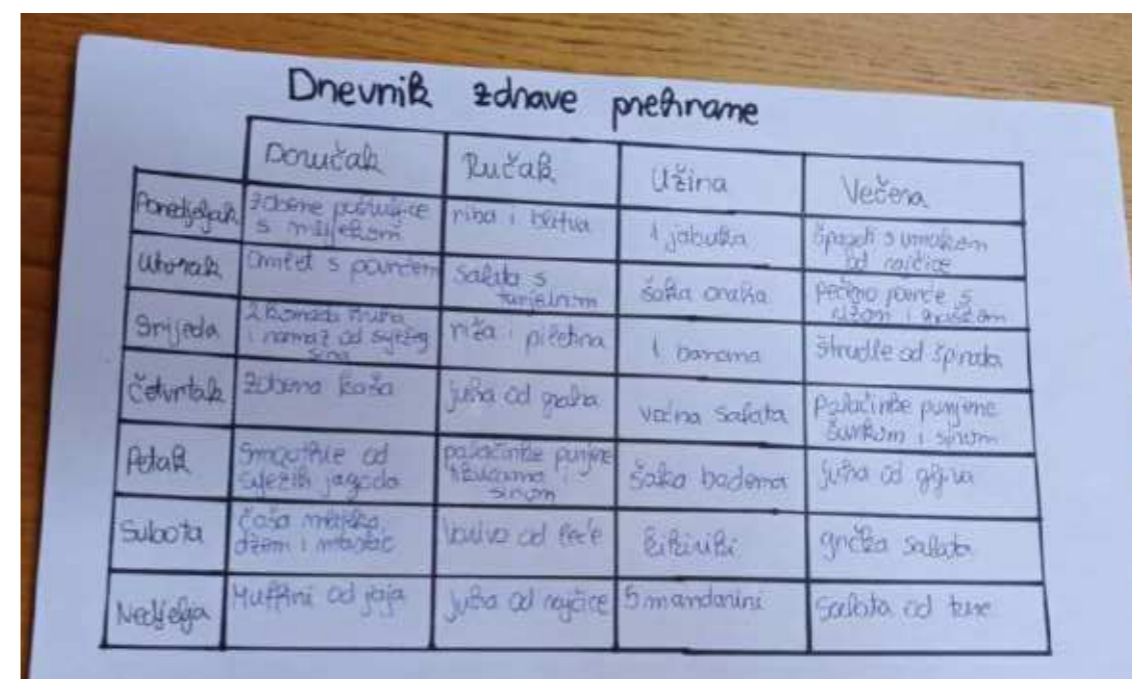 Dnevnik zdrave prehrane
Doručak Ručak Užina Večera
Ponedjeljak zobene pahuljice s mlijekom riba i blitva 1 jabuka špageti s umakom od rajčice
Utorak Omlet s povrćem salata s šaka oraha pečeno povrće s rižom i
Srijeda 2 komada kruha i namaz od svježeg sira riža i piletina 1 banana štrudle od špinata
Četvrtak zobena kaša juha od graha voćna salata palačinke punjene šunkom i sirom
Petak Smoothie od svježih jagoda palačinke punjene sirom šaka badema juha od gljiva
Subota čaša mlijeka, džem i maslac varivo od leće kikiriki grčka salata
Nedjelja Muffini od jaja juha od rajčice 5 mandarini salata od tune